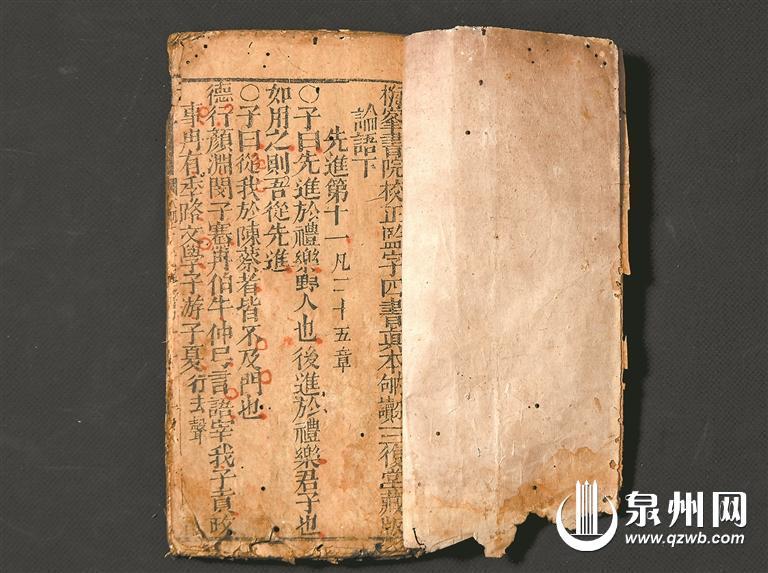 峯書院校正監字四書真本三復堂藏板
論語下
先進第十一 凡二十五章
○子曰先進於禮樂野人也後進於禮樂君子也
如用之則吾從先進
○子曰從我於陳蔡者皆不及門也
德行顏淵閔子騫冉伯牛仲弓言語宰我子貢政
事冉有季路文學子游子夏行去聲
泉州网
www.qzwb.com